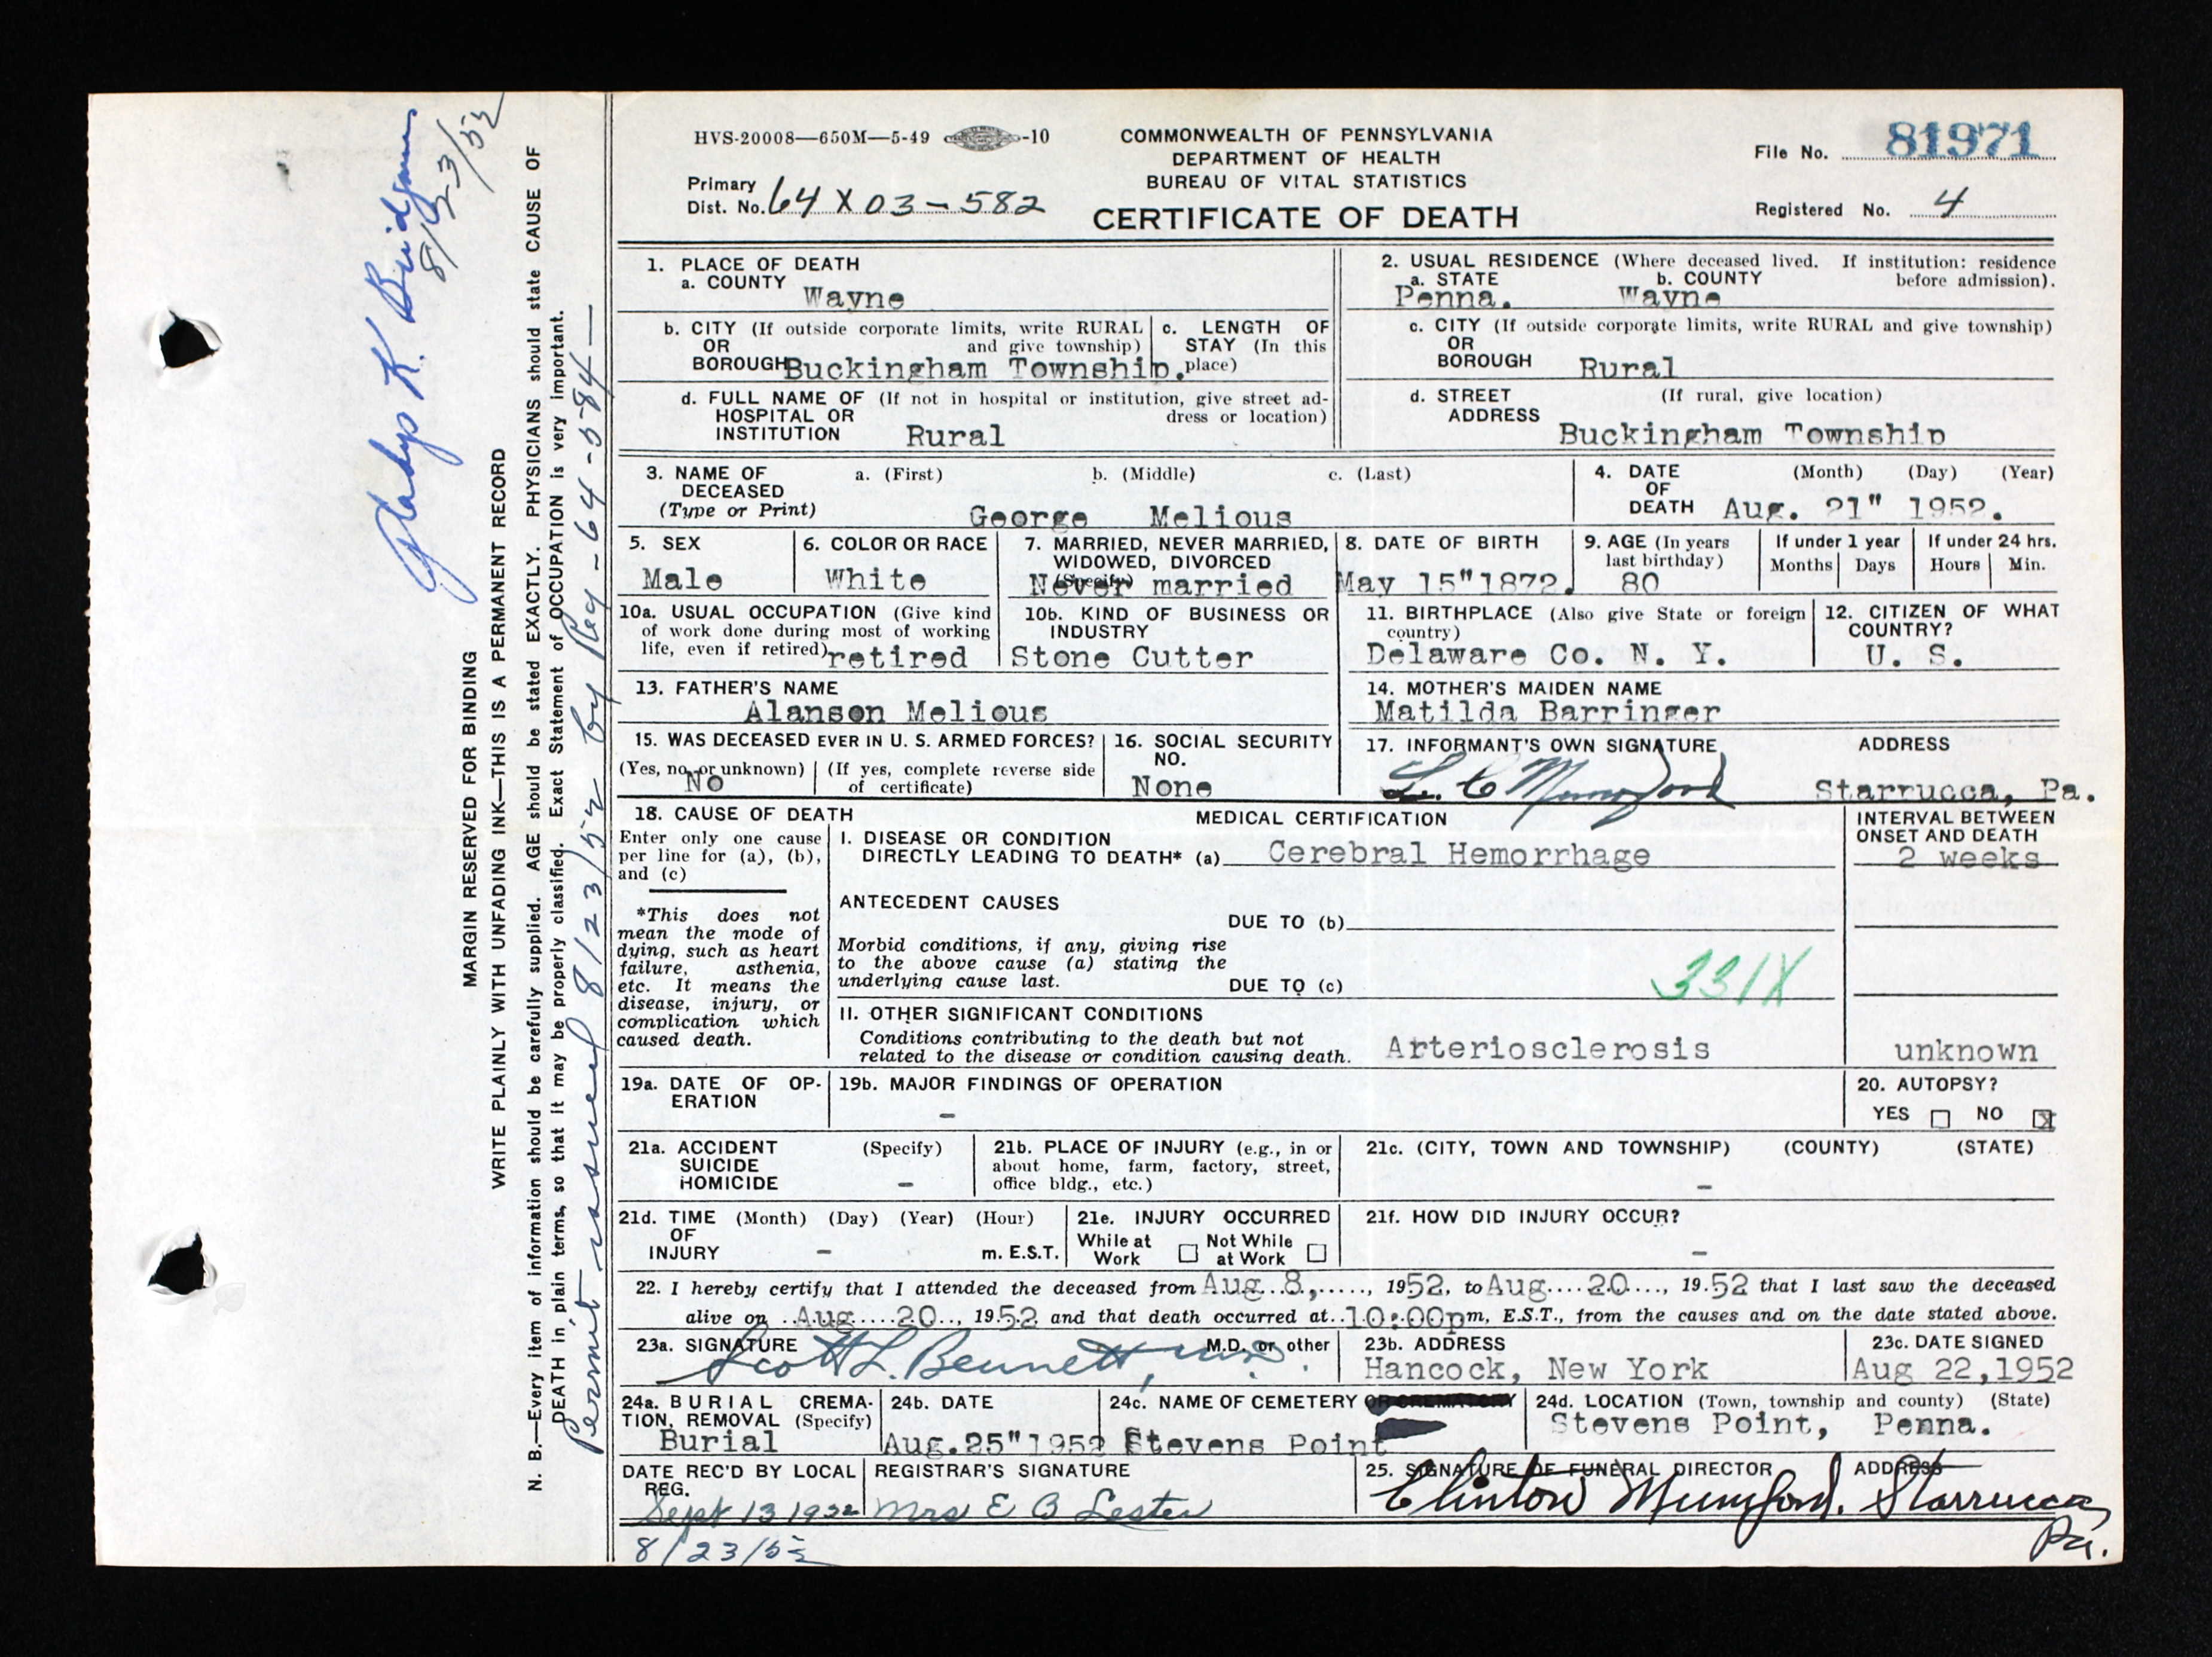 HVS-20008—650M—5-49 -10
COMMONWEALTH OF PENNSYLVANIA
DEPARTMENT OF HEALTH
BUREAU OF VITAL STATISTICS
CERTIFICATE OF DEATH
File No. 81971
Primary
Dist. No. 64 X 03 - 582
Registered No. 4
1. PLACE OF DEATH
a. COUNTY
Wayne
2. USUAL RESIDENCE (Where deceased lived. If institution: residence
a. STATE b. COUNTY before admission).
Penna. Wayne
b. CITY (If outside corporate limits, write RURAL
OR and give township)
BOROUGH Buckingham Township.
c. LENGTH OF
STAY (In this
place)
c. CITY (If outside corporate limits, write RURAL and give township)
OR
BOROUGH Rural
d. FULL NAME OF (If not in hospital or institution, give street ad-
HOSPITAL OR dress or location)
INSTITUTION Rural
d. STREET (If rural, give location)
ADDRESS
Buckingham Township
3. NAME OF a. (First) b. (Middle) c. (Last)
DECEASED
(Type or Print)
George Melious
4. DATE (Month) (Day) (Year)
OF
DEATH Aug. 21" 1952.
5. SEX
Male
6. COLOR OR RACE
White
7. MARRIED, NEVER MARRIED,
WIDOWED, DIVORCED
(Specify)
Never married
8. DATE OF BIRTH
May 15"1872.
9. AGE (In years
last birthday)
80
If under 1 year
Months Days
If under 24 hrs.
Hours Min.
10a. USUAL OCCUPATION (Give kind
of work done during most of working
life, even if retired)
retired
10b. KIND OF BUSINESS OR
INDUSTRY
Stone Cutter
11. BIRTHPLACE (Also give State or foreign
country)
Delaware Co. N. Y.
12. CITIZEN OF WHAT
COUNTRY?
U. S.
13. FATHER'S NAME
Alanson Melious
14. MOTHER'S MAIDEN NAME
Matilda Barringer
15. WAS DECEASED EVER IN U. S. ARMED FORCES?
(Yes, no, or unknown) (If yes, complete reverse side
of certificate)
No
16. SOCIAL SECURITY
NO.
None
17. INFORMANT'S OWN SIGNATURE ADDRESS
L. C Mumford Starrucca, Pa.
18. CAUSE OF DEATH
Enter only one cause
per line for (a), (b),
and (c)
*This does not
mean the mode of
dying, such as heart
failure, asthenia,
etc. It means the
disease, injury, or
complication which
caused death.
MEDICAL CERTIFICATION
I. DISEASE OR CONDITION
DIRECTLY LEADING TO DEATH* (a) Cerebral Hemorrhage
INTERVAL BETWEEN
ONSET AND DEATH
2 weeks
ANTECEDENT CAUSES
DUE TO (b)
Morbid conditions, if any, giving rise
to the above cause (a) stating the
underlying cause last.
DUE TO (c)
331X
II. OTHER SIGNIFICANT CONDITIONS
Conditions contributing to the death but not
related to the disease or condition causing death.
Arteriosclerosis unknown
19a. DATE OF OP-
ERATION
19b. MAJOR FINDINGS OF OPERATION
-
20. AUTOPSY?
YES ☐ NO ☒
21a. ACCIDENT (Specify)
SUICIDE
HOMICIDE -
21b. PLACE OF INJURY (e.g., in or
about home, farm, factory, street,
office bldg., etc.)
21c. (CITY, TOWN AND TOWNSHIP) (COUNTY) (STATE)
-
21d. TIME (Month) (Day) (Year) (Hour)
OF
INJURY - m. E.S.T.
21e. INJURY OCCURRED
While at Work ☐ Not While at Work ☐
21f. HOW DID INJURY OCCUR?
-
22. I hereby certify that I attended the deceased from Aug. 8, 1952, to Aug 20, 1952 that I last saw the deceased
alive on Aug 20, 1952 and that death occurred at 10:00pm, E.S.T., from the causes and on the date stated above.
23a. SIGNATURE M.D. or other
Scott L. Bennett, M.D.
23b. ADDRESS
Hancock, New York
23c. DATE SIGNED
Aug 22,1952
24a. BURIAL CREMA-
TION, REMOVAL (Specify)
Burial
24b. DATE
Aug.25" 1952
24c. NAME OF CEMETERY OR CREMATORY
Stevens Point
24d. LOCATION (Town, township and county) (State)
Stevens Point, Penna.
DATE REC'D BY LOCAL
REG.
Sept 13 1952
8/23/52
REGISTRAR'S SIGNATURE
Mrs E B Lester
25. SIGNATURE OF FUNERAL DIRECTOR ADDRESS
Clinton Mumford. Starrucca,
Pa.
Gladys K. Bridgman
8/23/52
MARGIN RESERVED FOR BINDING
WRITE PLAINLY WITH UNFADING INK—THIS IS A PERMANENT RECORD
N. B.—Every item of information should be carefully supplied. AGE should be stated EXACTLY. PHYSICIANS should state CAUSE OF
DEATH in plain terms, so that it may be properly classified. Exact Statement of OCCUPATION is very important.
Permit issued 8/23/52 by Reg - 64-584 —